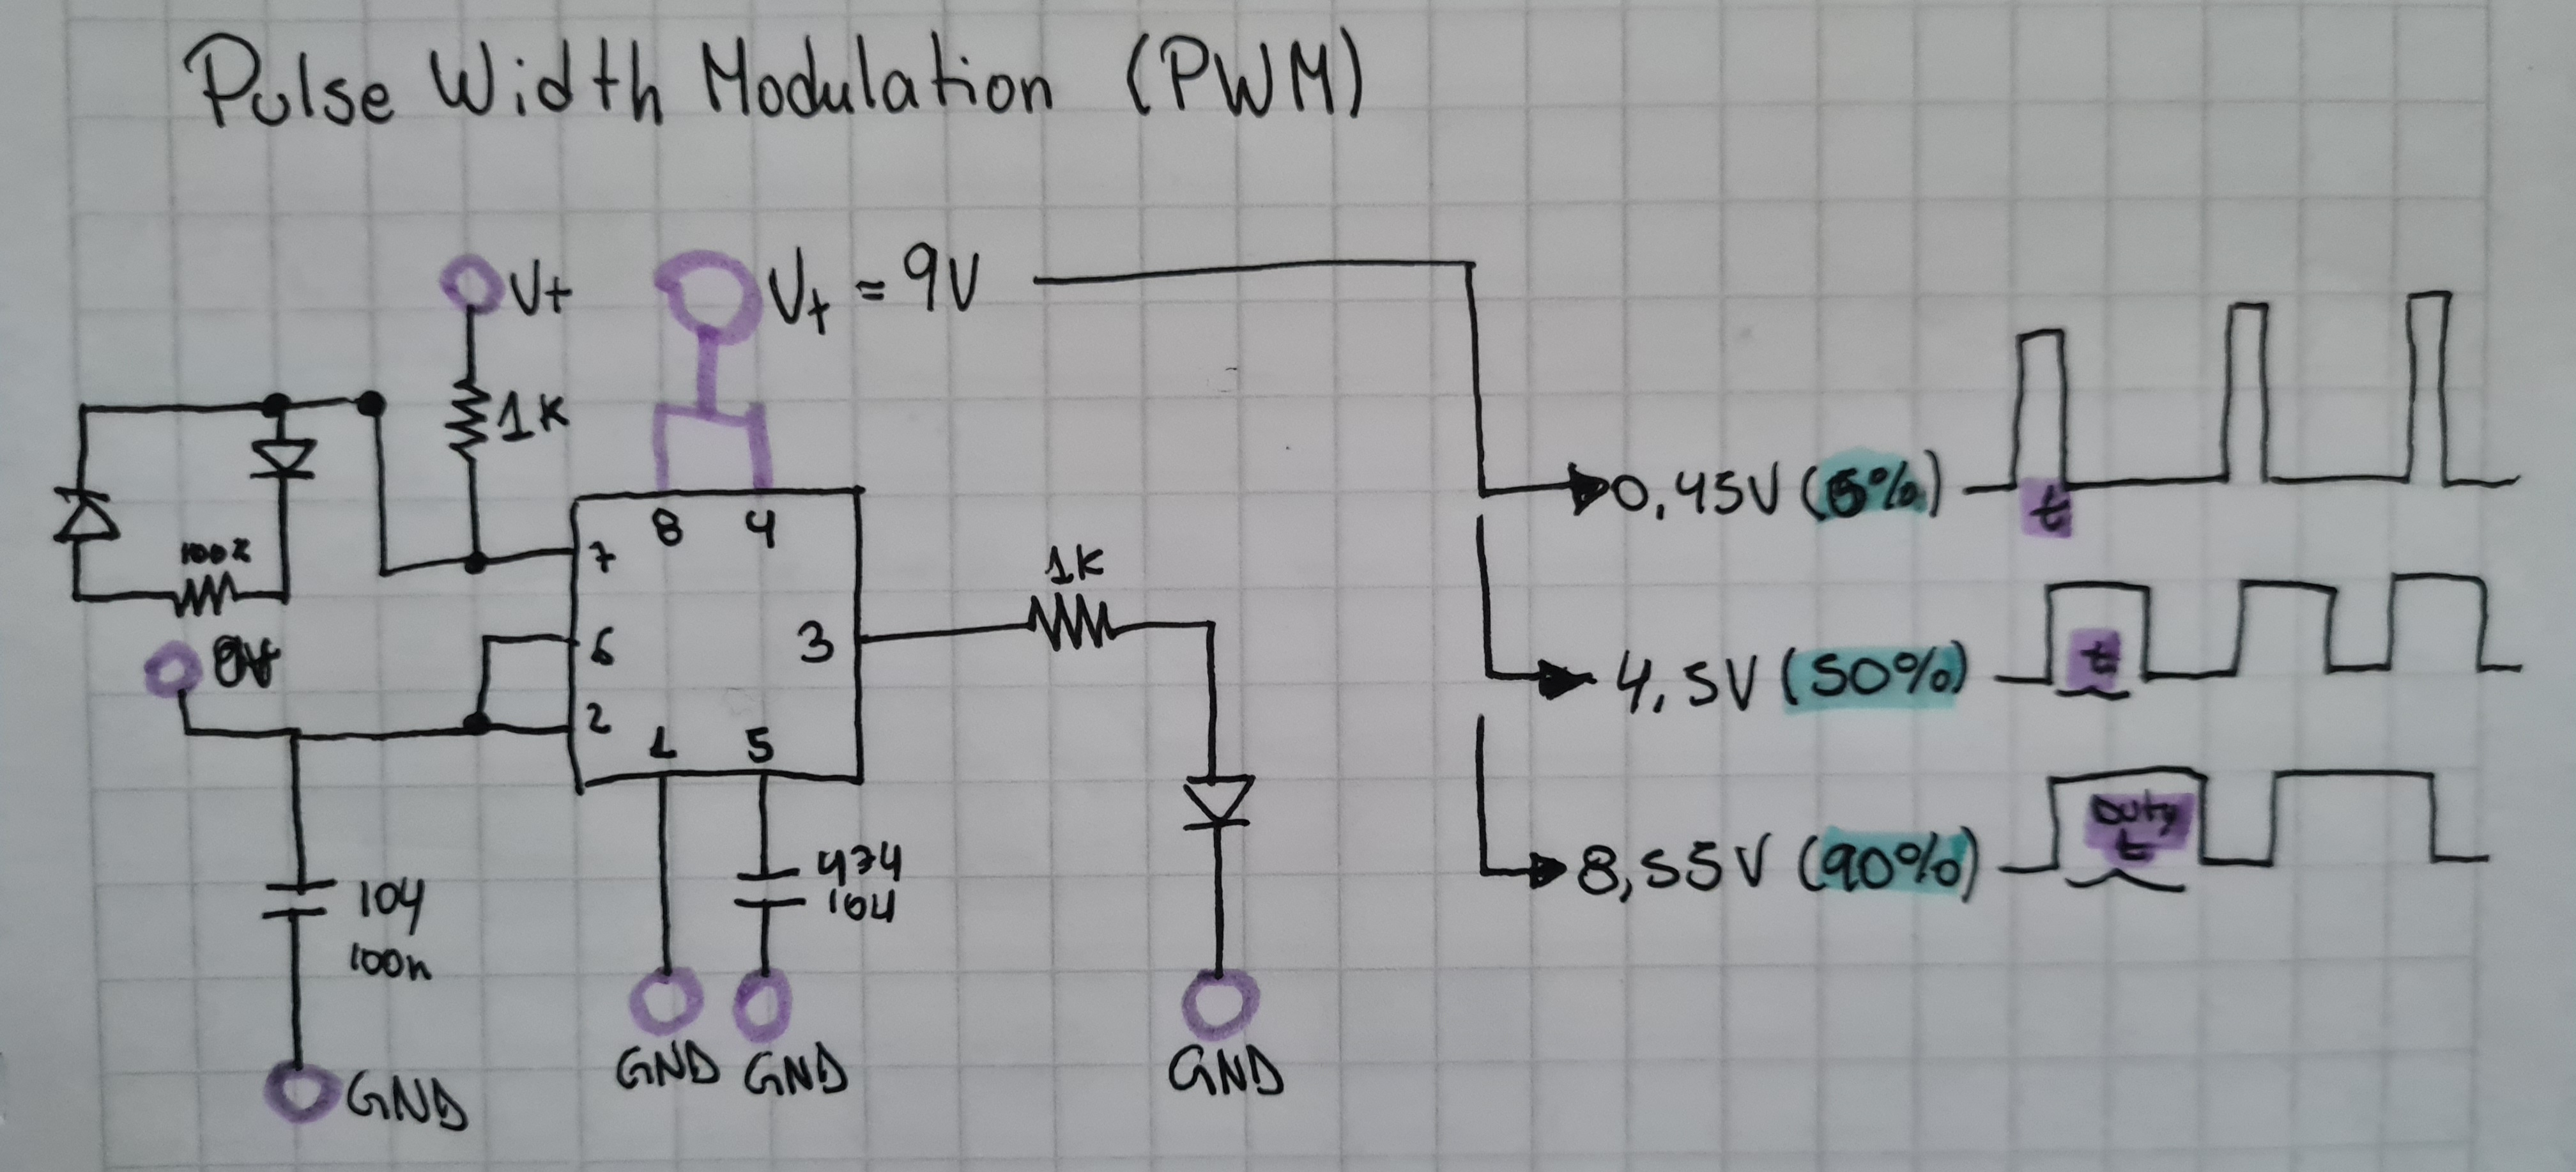 Pulse Width Modulation (PWM)
V+
V+ = 9V
1K
100K
8 4
7
6
3
2
1 5
1K
104
100n
474
104
GND
GND
GND
GND
0,45V (5%)
t
4,5V (50%)
t
8,55V (90%)
Duty
t